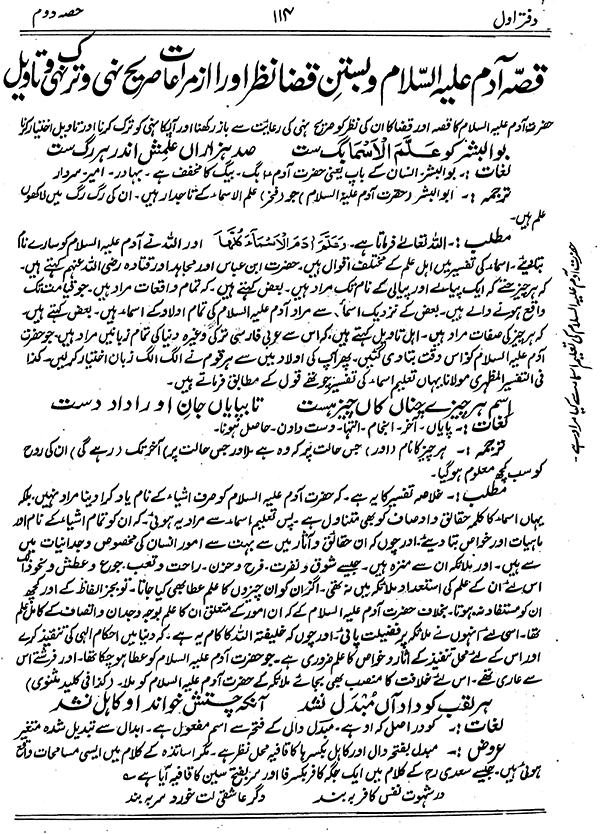 دفتر اول ۱۱۴ حصہ دوم
قصّہ آدم علیہ السّلام و بستنِ قضا نظر اورا از مراعات صریح نہی و ترک نہی و تاویل
حضرت آدم علیہ السلام کا قصہ اور قضا کا ان کی نظر کو صریح نہی کی رعایت سے باز رکھنا اور آپکا نہی کو ترک کرنا اور تاویل اختیار کرنا
بوالبشر کو عَلَّمَ الْاَسْمَا بگ ست صد ہزاراں علمش اندر ہر رگ ست
لغات :۔ بوالبشر۔ انسان کے باپ یعنی حضرت آدمؑ بگ۔ بیگ کا مخفف ہے۔ بہادر۔ امیر۔ سردار
ترجمہ :۔ ابوالبشر (حضرت آدم علیہ السّلام) جو (دفترِ) علم الاسماء کے تاجدار ہیں۔ ان کی رگ رگ میں لاکھوں
علم ہیں۔
مطلب :۔ اللہ تعالیٰ فرماتا ہے۔ وَعَلَّمَ اٰدَمَ الْاَسْمَآءَ كُلَّهَا اور اللہ نے آدم علیہ السلام کو سارے نام
بتا دیئے۔ اسماء کی تفسیر میں اہل علم کے مختلف اقوال ہیں۔ حضرت ابن عباس اور مجاہد اور قتادہ رضی اللہ عنہم کہتے ہیں۔
کہ ہر چیز حتٰے کہ ایک پیالے اور پیالی کے نام تک مراد ہیں۔ بعض کہتے ہیں۔ کہ تمام واقعات مراد ہیں۔ جو قیامت تک
واقع ہونے والے ہیں۔ بعض کے نزدیک اسماء سے مراد آدم علیہ السلام کی تمام اولاد کے اسماء ہیں۔ بعض کہتے ہیں۔
کہ ہر چیز کی صفات مراد ہیں۔ اہل تاویل کہتے ہیں، کہ اس سے عربی فارسی ترکی وغیرہ دنیا کی تمام زبانیں مراد ہیں۔ جو حضرت
آدم علیہ السلام کو اس وقت بتا دی گئیں۔ پھر آپ کی اولاد میں سے ہر قوم نے الگ الگ زبان اختیار کرلیں۔ کذا
فی التفسیر المظہری مولانا یہاں تعلیم اسماء کی تفسیر چوتھے قول کے مطابق فرماتے ہیں۔
اسم ہر چیزے چناں کاں چیز ہست تا بپایاں جانِ او را داد دست
لغات :۔ پایاں۔ آخر۔ انجام۔ انتہا۔ دست دادن۔ حاصل ہونا۔
ترجمہ :۔ ہر چیز کا نام (اور) جس حالت پر کہ وہ ہے اور جس حالت پر) آخر تک (رہے گی) ان کی روح
کو سب کچھ معلوم ہوگیا۔
مطلب :۔ خلاصہ تفسیر کا یہ ہے۔ کہ حضرت آدم علیہ السلام کو صرف اشیاء کے نام یاد کرا دینا مراد نہیں، بلکہ
یہاں اسماء کا کلمہ حقائق و اوصاف کو بھی متناول ہے۔ پس تعلیم اسماء سے مراد یہ ہوئی کہ ان کو تمام اشیاء کے نام اور
ماہیات اور خواص بتا دیئے، اور چوں کہ ان حقائق و آثار میں سے بہت سے امور انسان کی مخصوص وجدانیات میں
سے ہیں۔ اور ملائکہ ان سے منزہ ہیں۔ جیسے شوق و نفرت۔ فرح و حزن۔ راحت و تعب۔ جوع و عطش و نحو ذالک
اس لئے ان کے علم کی استعداد ملائکہ میں نہ تھی۔ اگر ان کو ان چیزوں کا علم عطا بھی کیا جاتا۔ تو بجز الفاظ کے اور کچھ
ان کو مستفاد نہ ہوتا۔ بخلاف حضرت آدم علیہ السلام کے کہ ان امور کے متعلق ان کا علم بوجہ وجدان و اتصاف کے کامل علم
تھا۔ اسی لئے انہوں نے ملائکہ پر فضیلت پائی۔ اور چوں کہ خلیفتہ اللہ کا کام یہ ہے۔ کہ دنیا میں احکام الٰہی کی تنفیذ کرے
اور اس کے لئے محل تنفیذ کے آثار و خواص کا علم ضروری ہے۔ جو حضرت آدم علیہ السلام کو عطا ہوچکا تھا۔ اور فرشتے اس
سے عاری تھے۔ اس لئے خلافت کا منصب بھی بجائے ملائکہ کے حضرت آدم علیہ السلام کو ملا۔ (کذا فی کلید مثنوی)
ہر لقب کو داد آں مُبْدَل نشد آنکہ چُستش خواند او کاہل نشد
لغات :۔ کو دراصل کہ او ہے۔ مبدل دال کے فتحہ سے اسم مفعول ہے۔ ابدال سے تبدیل شدہ متغیر
عروض :۔ مبدل بفتحہ دال اور کاہل بکسر ہا کا قافیہ محل نظر ہے۔ مگر اساتذہ کے کلام میں ایسی مسامحات واقع
ہوئی ہیں۔ جیسے سعدی رح کے کلام میں ایک جگہ کافر بکسر فا اور سر بفتح سین کا قافیہ آیا ہے ؎
در شہوت نفس کافر بہ بند دگر عاشقی لت خورد سر بہ بند
حضرت آدم علیہ السلام کی تعلیم اسماء سے کیا مراد ہے۔